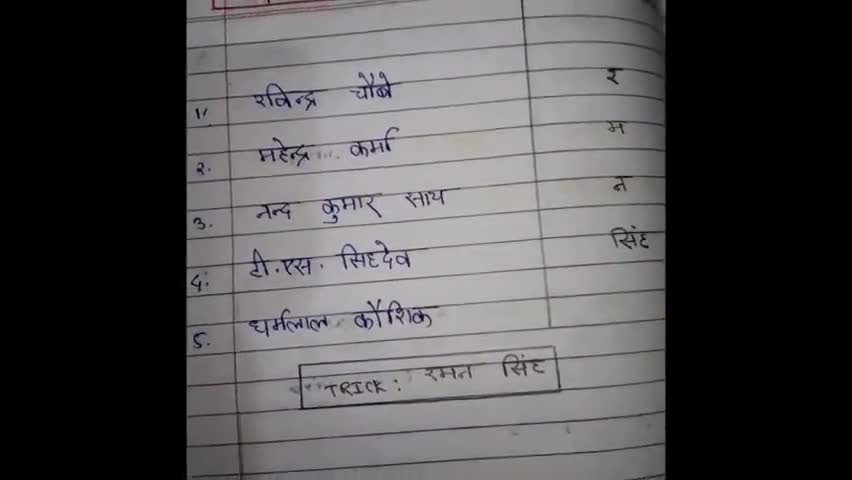 1. रविन्द्र चौबे र
2. महेन्द्र कर्मा म
3. नन्द कुमार साय न
4. टी.एस. सिंहदेव सिंह
5. धर्मलाल कौशिक
TRICK: रमन सिंह